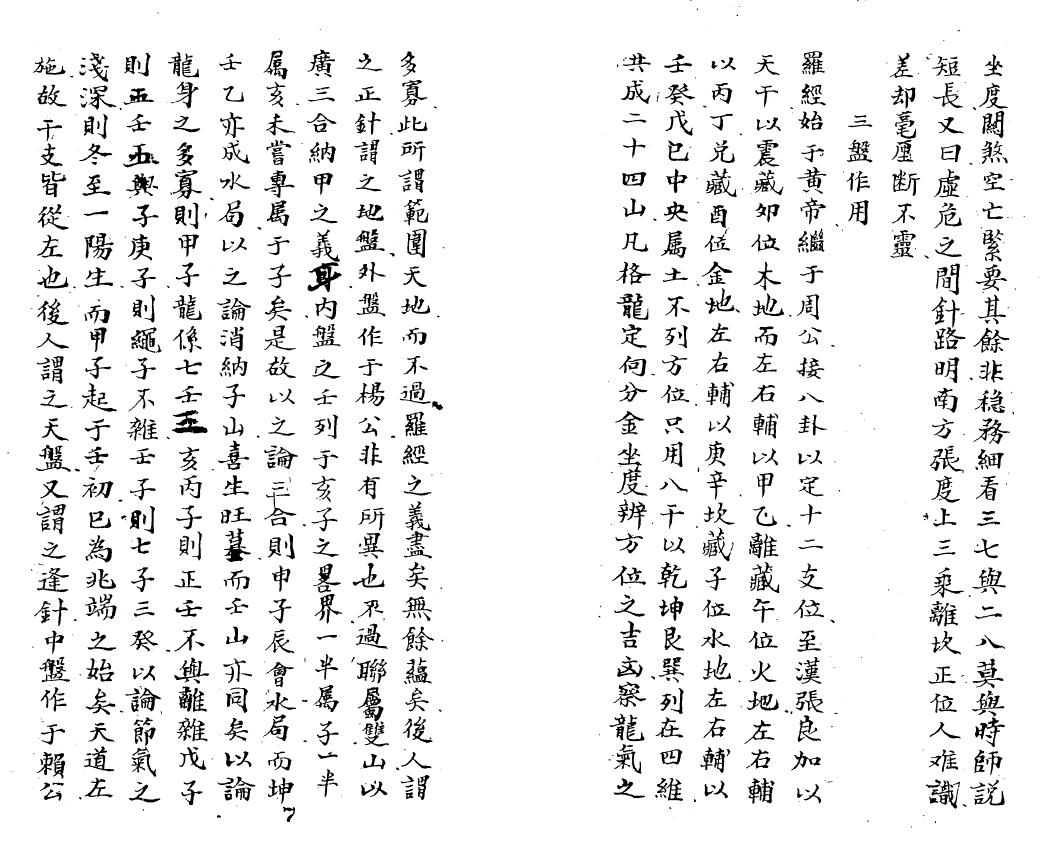 坐度關煞空亡緊要其餘非穩務細看三七與二八莫與時師説
短長又曰虛危之間針路明南方張度上三乘離坎正位人难識
差却毫厘断不靈
三盤作用
羅經始于黄帝繼于周公接八卦以定十二支位至漢張良加以
天干以震藏夘位木地而左右輔以甲乙離藏午位火地左右輔
以丙丁兑藏酉位金地左右輔以庚辛坎藏子位水地左右輔以
壬癸戊巳中央属土不列方位只用八干以乾坤艮巽列在四維
共成二十四山凡格龍定向分金坐度辨方位之吉凶察龍氣之
多寡此所謂範圍天地而不過羅經之義盡矣無餘蘊矣後人謂
之正針謂之地盤外盤作于楊公非有所異也不過聯屬雙山以
廣三合納甲之義耳内盤之壬列于亥子之畧界一半属子一半
属亥未嘗專属于子矣是故以之論三合則申子辰會水局而坤
壬乙亦成水局以之論消納子山喜生旺墓而壬山亦同矣以論
龍身之多寡則甲子龍係七壬三亥丙子則正壬不與離雜戊子
則五壬五與子庚子則繩子不雜壬子則七子三癸以論節氣之
淺深則冬至一陽生而甲子起于壬初巳為兆端之始矣天道左
施故干支皆從左也後人謂之天盤又謂之逢針中盤作于賴公
7